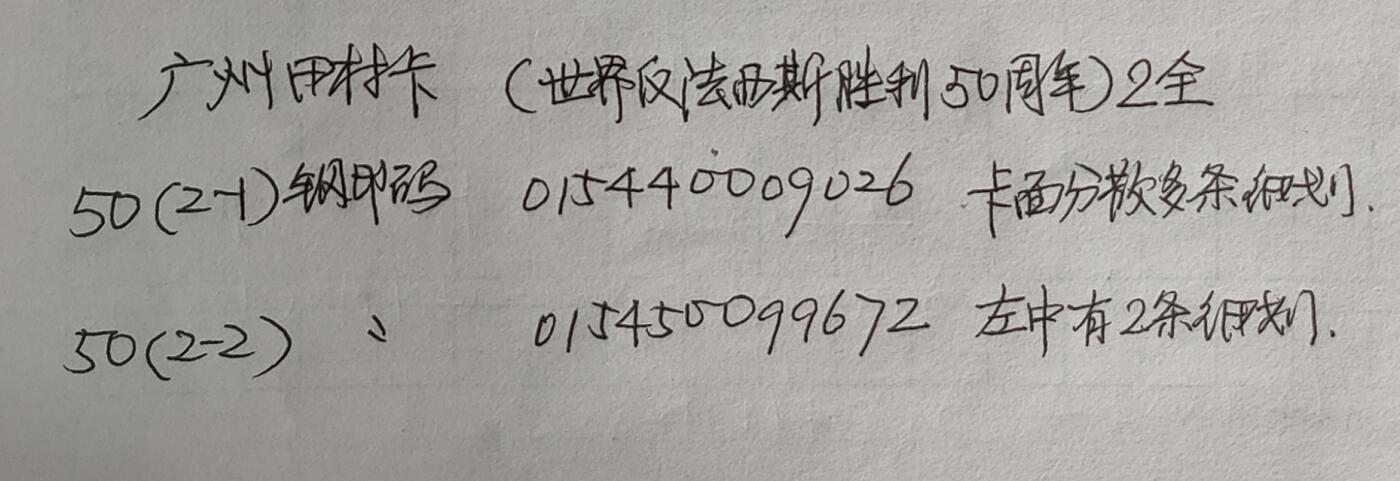 广州田村卡 (世界反法西斯胜利50周年)2全
50(2-1)钢印码 015440009026 卡面分散多条细划.
50(2-2) 〃 015450099672 左中有2条细划.